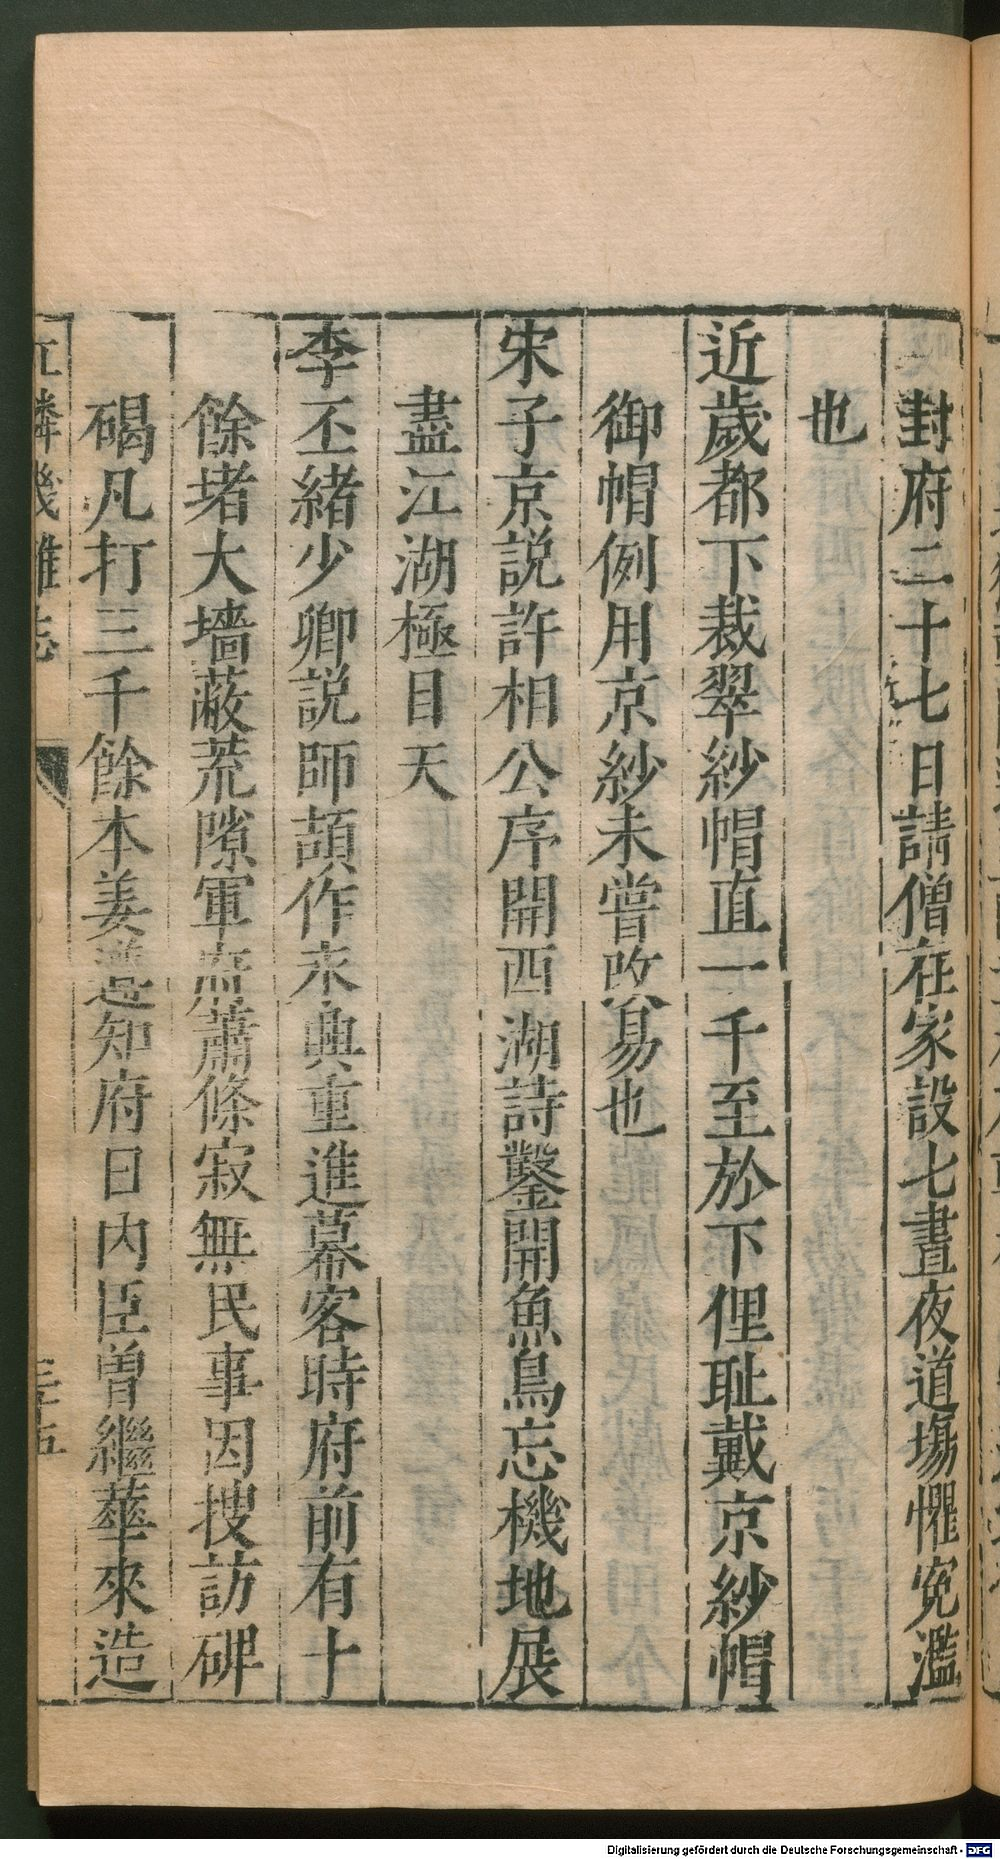 封府二十七日請僧在家設七晝夜道場懼寃濫
也
近歲都下裁翠紗帽直一千至於下俚耻戴京紗帽
御帽例用京紗未嘗改易也
宋子京説許相公序開西湖詩鑿開魚鳥忘機地展
盡江湖極目天
李丕緒少卿説師頏作未典重進幕客時府前有十
餘堵大墻蔽荒隙軍府蕭條寂無民事因搜訪碑
碣凡打三千餘本姜遵知府日内臣曽繼華來造
江鄰幾雜志
三五
Digitalisierung gefördert durch die Deutsche Forschungsgemeinschaft - DFG